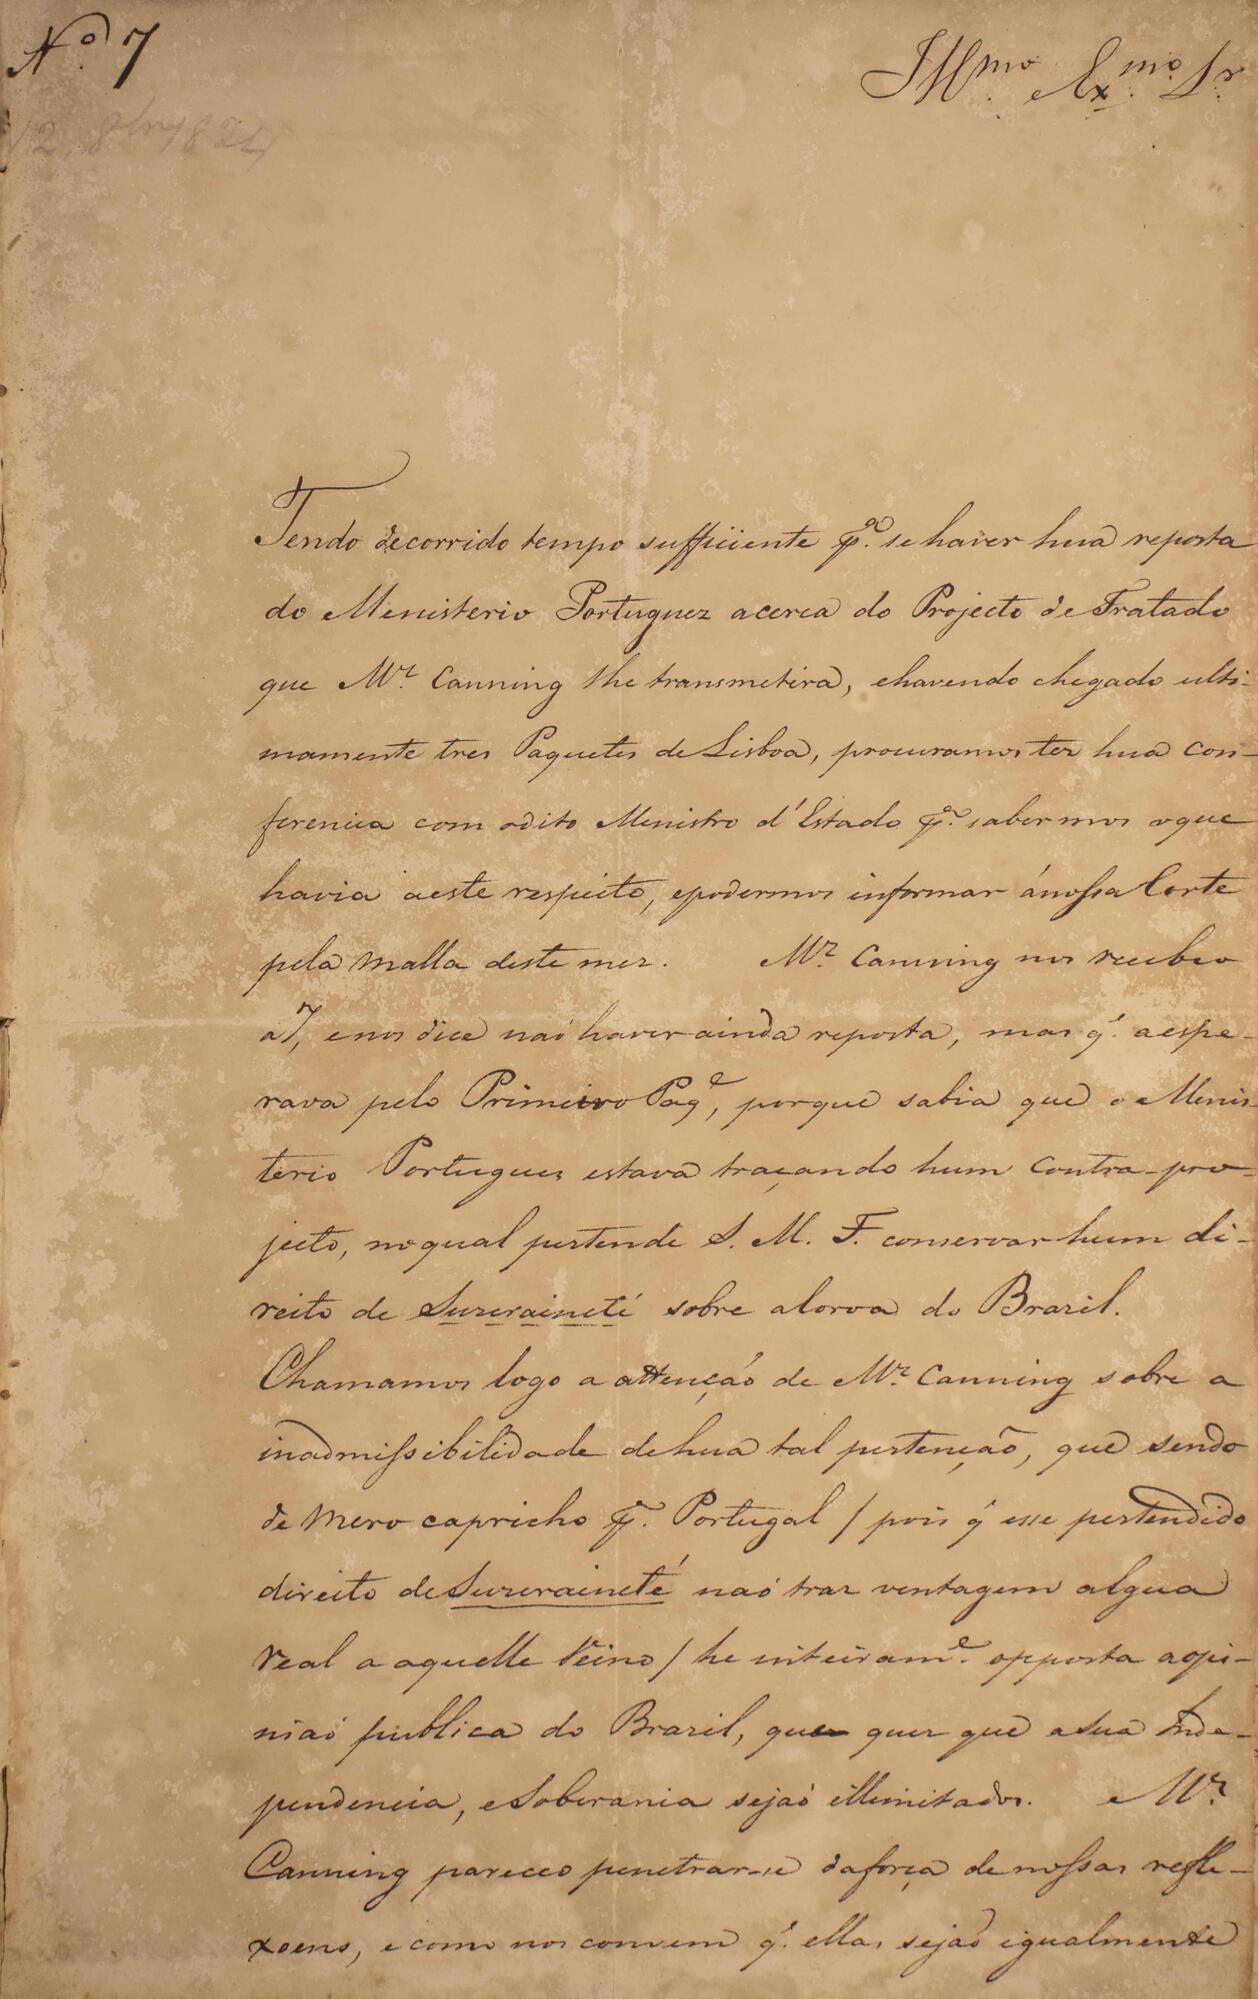 Nº. 7
Illmo. Exmo. Sr.
Tendo decorrido tempo sufficiente pª. se haver hua reposta
do Menisterio Portuguez acerca do Projecto de Tratado
que Mr. Canning lhe transmetira, e havendo chegado ulti-
mamente tres Paquetes de Lisboa, procuramos ter hua con-
ferencia com o dito Menistro d'Estado pª. sabermos o que
havia a este respeito, e podermos informar á nossa Corte
pela malla deste mez. Mr. Canning nos recebeo
a 7, e nos dice naó haver ainda reposta, mas q'. a espe-
rava pelo Primeiro Paqe, porque sabia que o Menis-
terio Portuguez estava traçando hum Contra-pro-
jecto, no qual pertende S. M. F. conservar hum di-
reito de Suzeraineté sobre a Coroa do Brazil.
Chamamos logo a attençaó de Mr. Canning sobre a
inadmissibilidade de hua tal pertenção, que sendo
de mero capricho pª. Portugal / pois q' esse pertendido
direito de Suzeraineté naó traz ventagem algua
real a aquelle Reino / he inteirame. opposta a opi-
niaó publica do Brazil, que quer que a sua Inde-
pendencia, e Soberania sejaó illimitados. Mr.
Canning pareceo penetrar-se da força de nossas refle-
xoens, e como nos convem q'. ellas sejaó igualmente